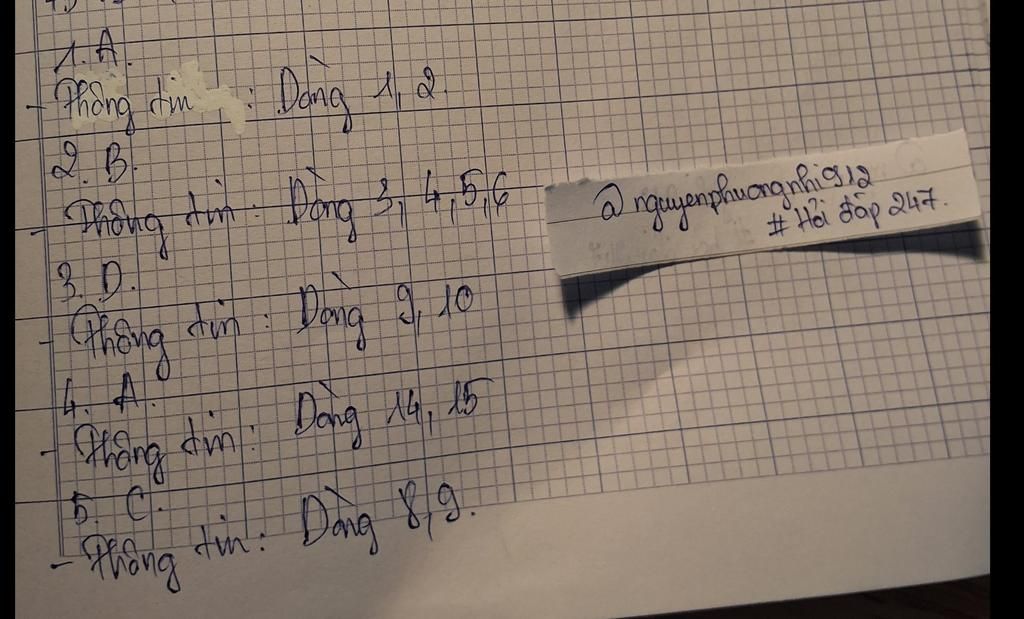 1. A.
- Thông tin : Dòng 1, 2.
2. B.
- Thông tin : Dòng 3, 4, 5, 6
@ nguyenphuongnhi912
# Hỏi đáp 247.
3. D.
- Thông tin : Dòng 9, 10
4. A.
- Thông tin : Dòng 14, 15
5. C.
- Thông tin : Dòng 8, 9.